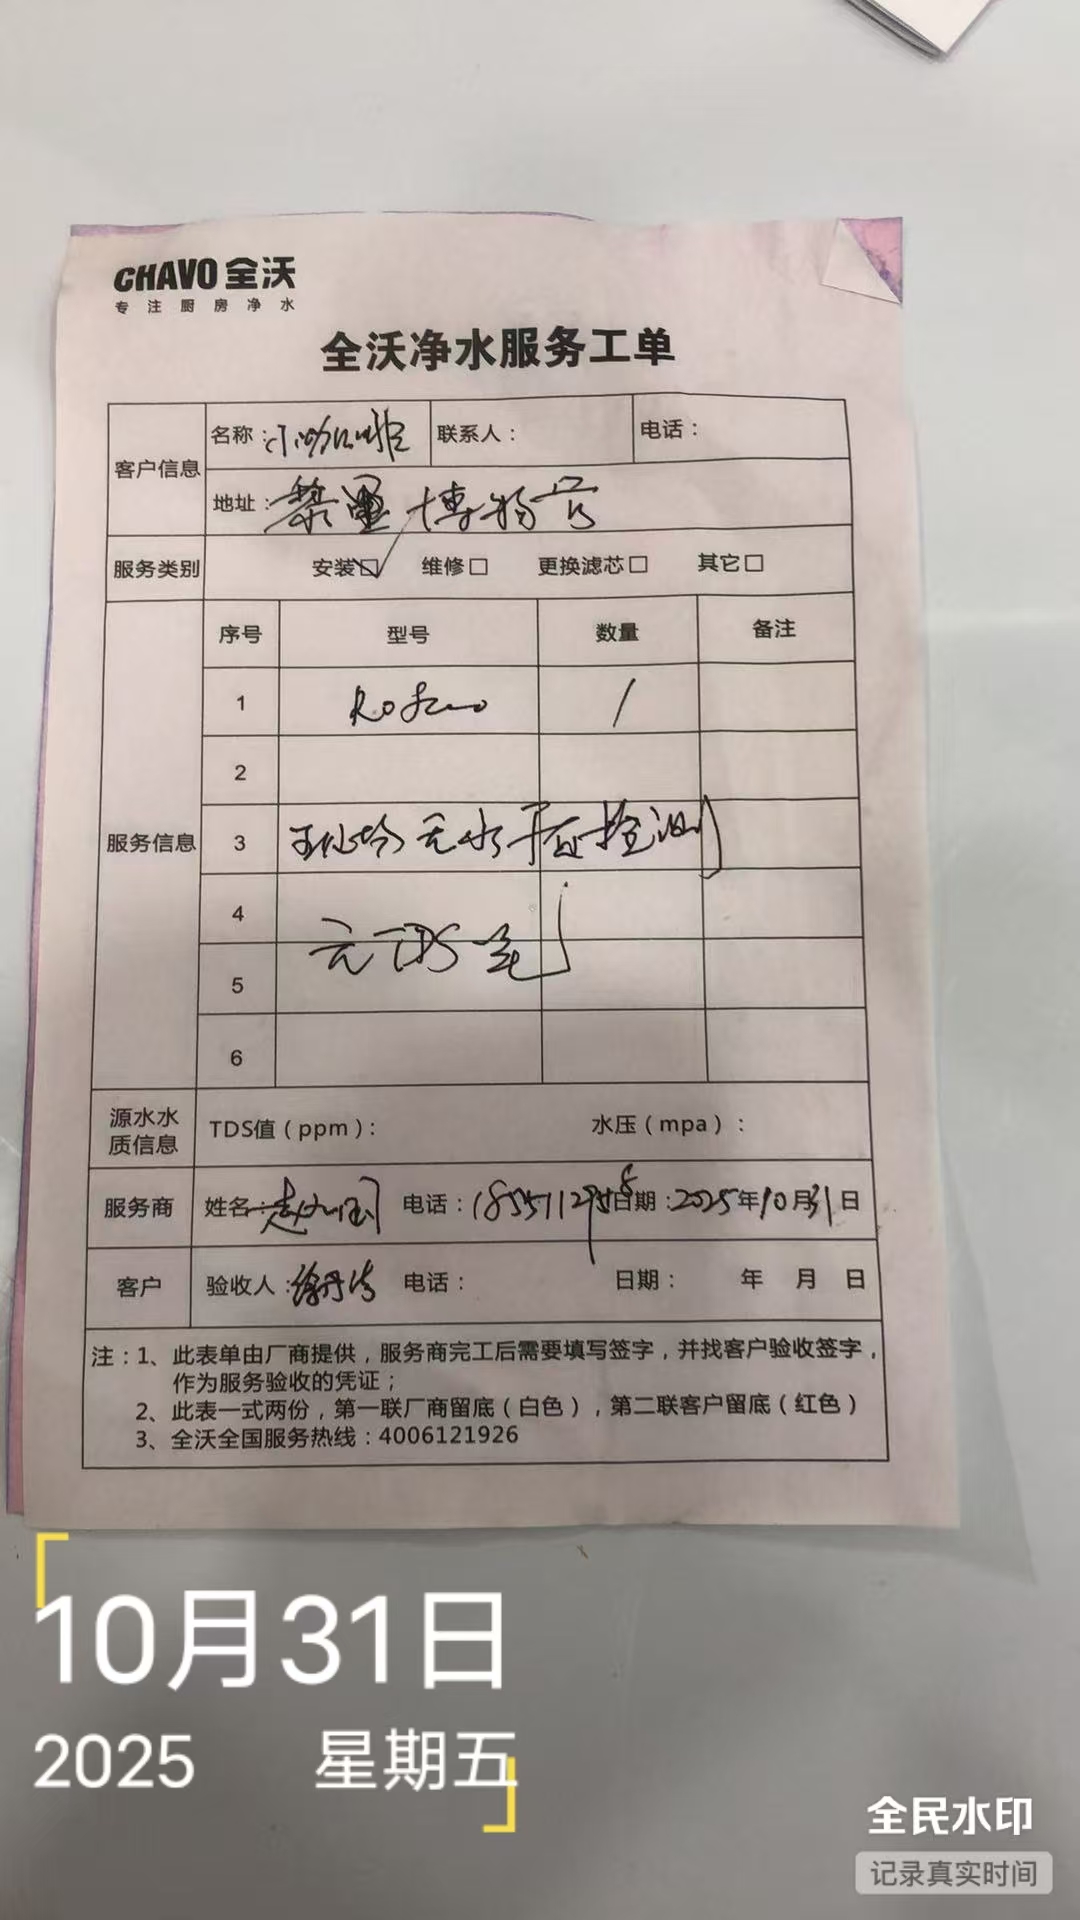 CHAVO 全沃
专注厨房净水
全沃净水服务工单
客户信息 名称：小咖啡 联系人： 电话：
地址：黎里博物馆
服务类别 安装☑ 维修□ 更换滤芯□ 其它□
服务信息 序号 型号 数量 备注
1 Ro 1
2
3 现场无水 检测
4
5
6
源水水质信息 TDS值（ppm）： 水压（mpa）：
服务商 姓名： 电话： 日期：2025年10月31日
客户 验收人： 电话： 日期： 年 月 日
注：1、此表单由厂商提供，服务商完工后需要填写签字，并找客户验收签字，
作为服务验收的凭证；
2、此表一式两份，第一联厂商留底（白色），第二联客户留底（红色）
3、全沃全国服务热线：4006121926
10月31日
2025 星期五
全民水印
记录真实时间